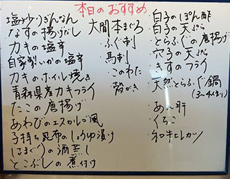 本日のおすすめ
塩ゆりぎんなん
なすの揚げだし
カキの塩辛
自家製いかの塩辛
カキのホイル焼き
青森県産カキフライ
たこの唐揚げ
あわびのエスカルゴ風
子持ち昆布のしょうゆ漬け
はまぐりの酒蒸し
とこぶしの煮付け
大間本まぐろ
ふぐ刺
馬刺
このわた
殻がき
白子のぽん酢
白子の天ぷら
とらふぐの唐揚
穴子の天ぷら
きすのフライ
天然とらふぐ鍋
あん肝
くちこ
和牛ヒレカツ